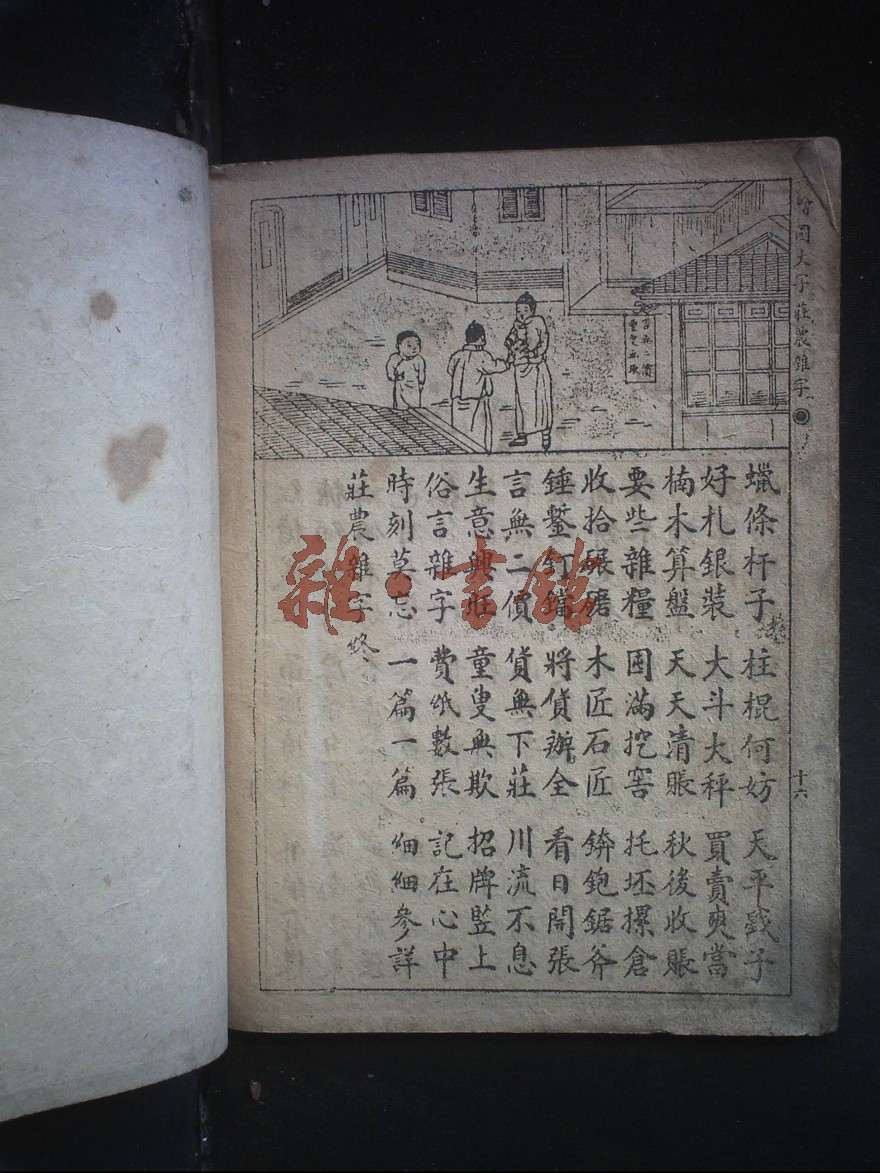 大字莊農雜字
十六
言無二價
童叟無欺
蠟條杆子 柱棍何妨 天平戥子
好札銀裝 大斗大秤 買賣爽當
楠木算盤 天天清賬 秋後收賬
要些雜糧 囤滿挖窖 托坯摞倉
收拾碾磨 木匠石匠 錛鉋鋸斧
錘鏨釘鐺 將貨辦全 看日開張
言無二價 貨無下莊 川流不息
生意興旺 童叟無欺 招牌竪上
俗言雜字 費纸數張 記在心中
時刻莫忘 一篇一篇 細細參詳
莊農雜字 終
雜·書館